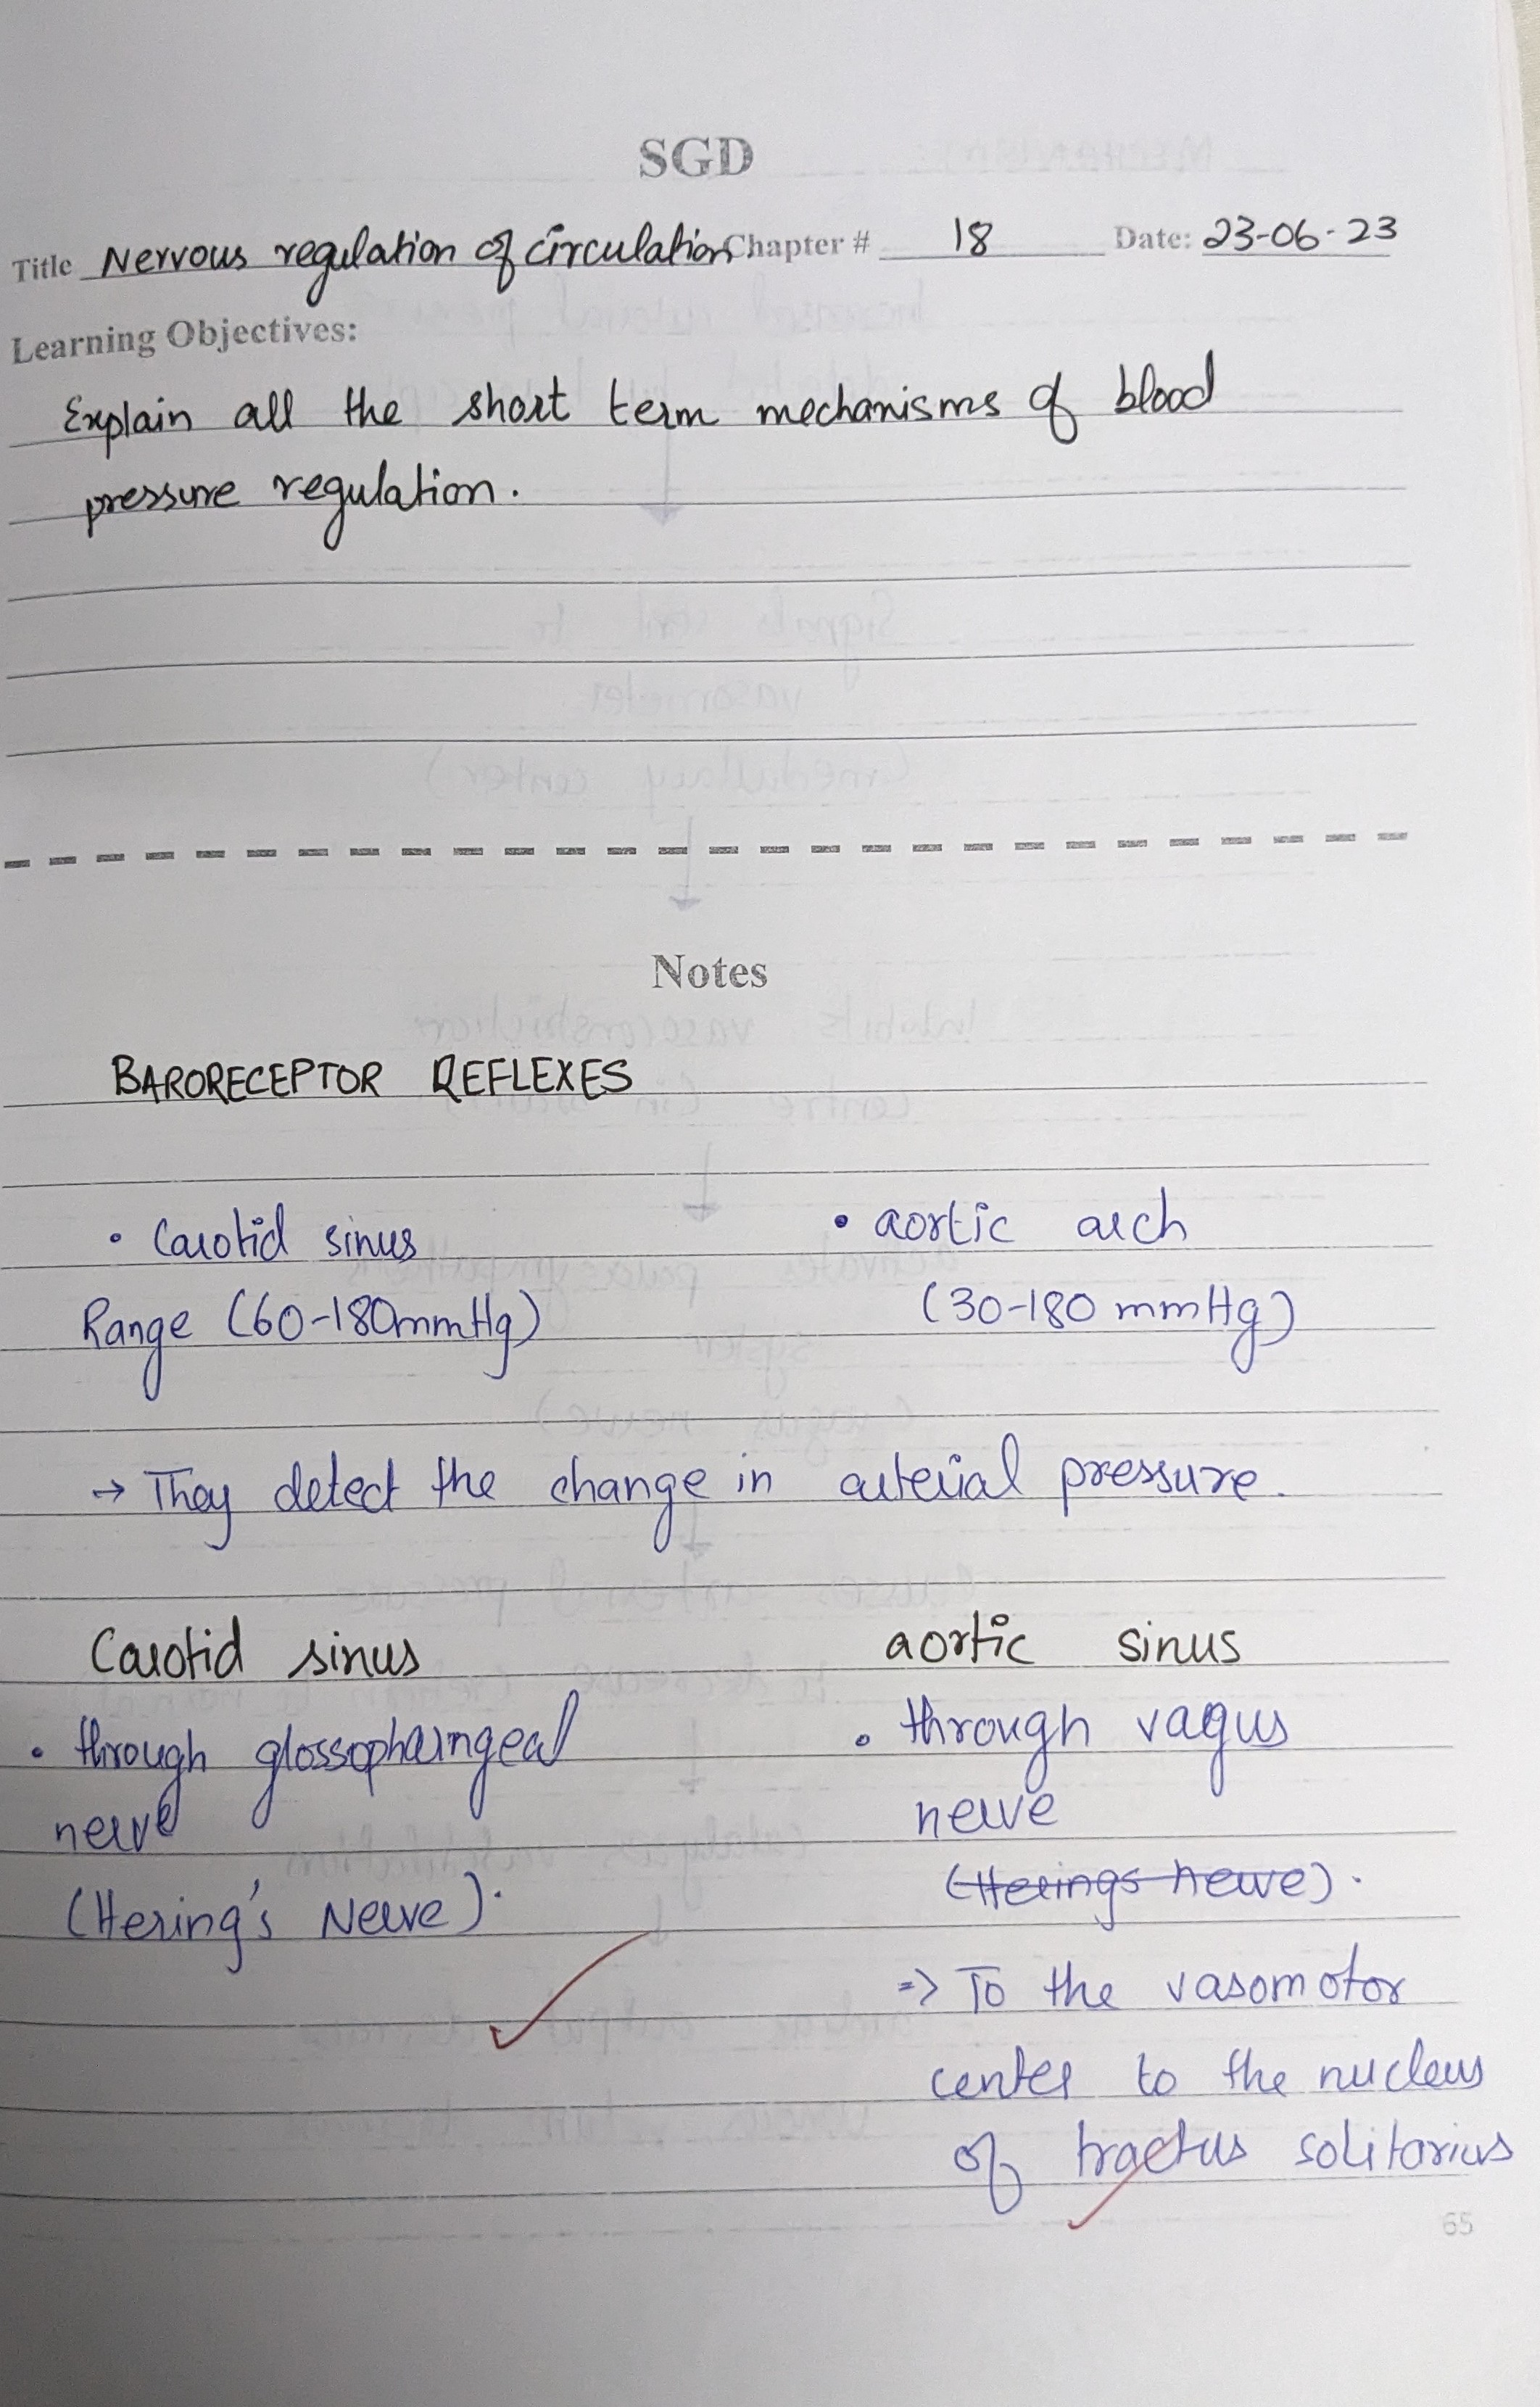 SGD
Title Nervous regulation of circulation Chapter # 18 Date: 23-06-23
Learning Objectives:
Explain all the short term mechanisms of blood
pressure regulation.
Notes
BARORECEPTOR REFLEXES
• Carotid sinus • aortic arch
Range (60-180mmHg) (30-180 mmHg)
→ They detect the change in arterial pressure.
Carotid sinus aortic sinus
• through glossopharngeal • through vagus
nerve nerve
(Hering's Nerve). (Herings nerve).
=> To the vasomotor
center to the nucleus
of tractus solitarius
65